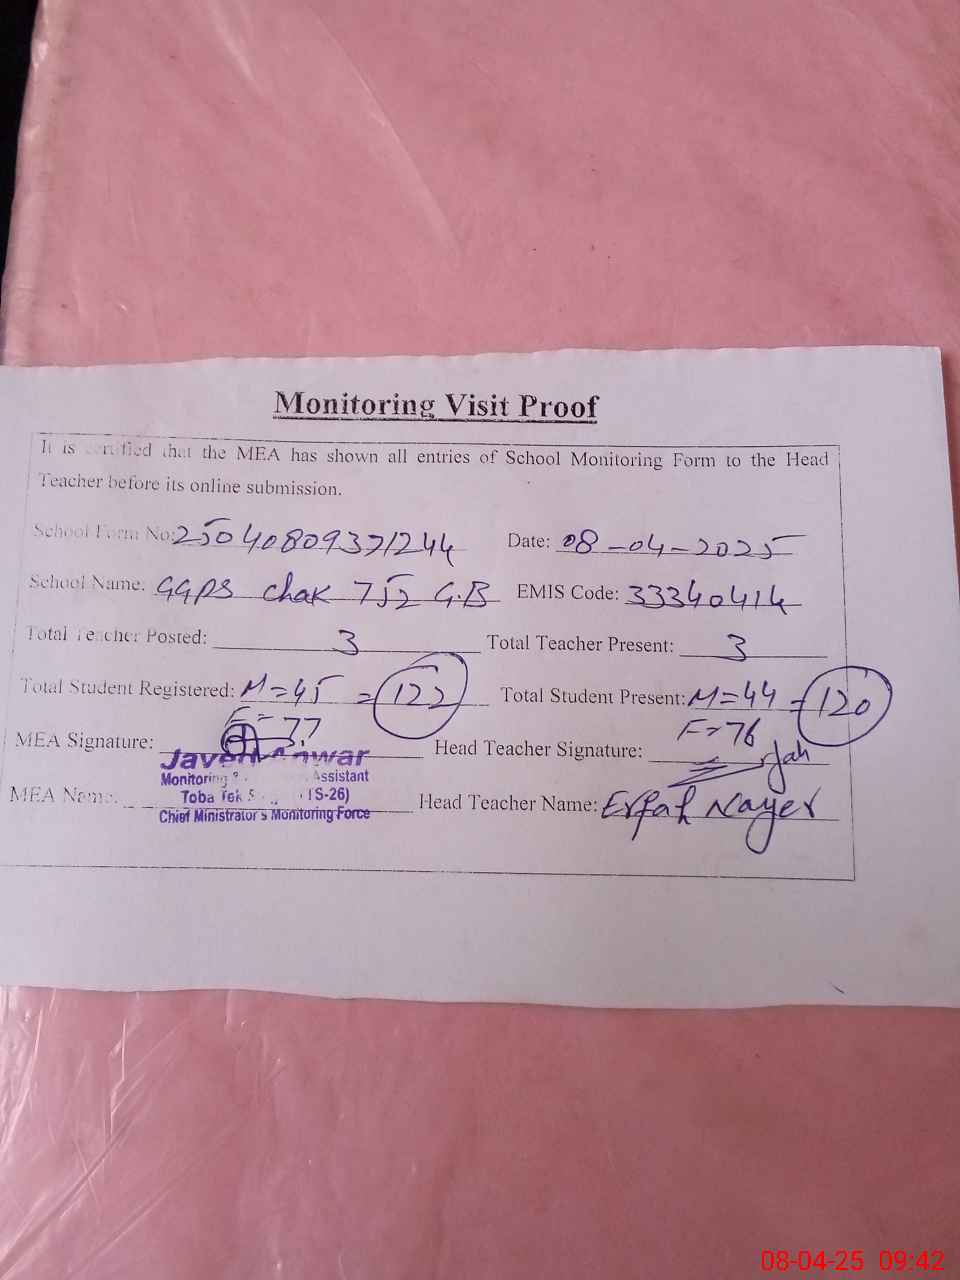 Monitoring Visit Proof
It is certified that the MEA has shown all entries of School Monitoring Form to the Head
Teacher before its online submission.
School Form No: 25040809371244 Date: 08-04-2025
School Name: GGPS Chak 752 G.B EMIS Code: 33340414
Total Teacher Posted: 3 Total Teacher Present: 3
Total Student Registered: M=45 = 122 Total Student Present: M=44 = 120
F=77 F=76
MEA Signature: Head Teacher Signature:
Javed Anwar
Monitoring Assistant
MEA Name: Toba Tek (TS-26) Head Teacher Name: Erfah Nayer
Chief Ministrator's Monitoring Force
08-04-25 09:42